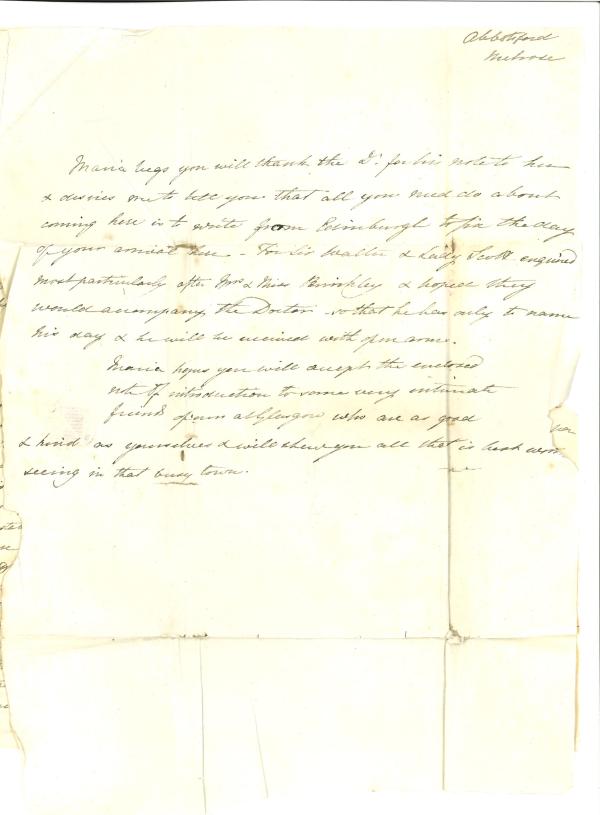 Abbotsford
Melrose
Maria begs you will thank the Dr. for his note to her
& desires me to tell you that all you need do about
coming here is to write from Edinburgh to fix the day
of your arrival here - For Sir Walter & Lady Scott enquired
most particularly after Mrs & Miss Brinkley & hoped they
would accompany the Doctor so that he has only to name
his day & he will be received with open arms.
Maria hopes you will accept the enclosed
note of introduction to some very intimate
friends of ours at Glasgow who are as good
& kind as yourselves & will shew you all that is best worth
seeing in that busy town.